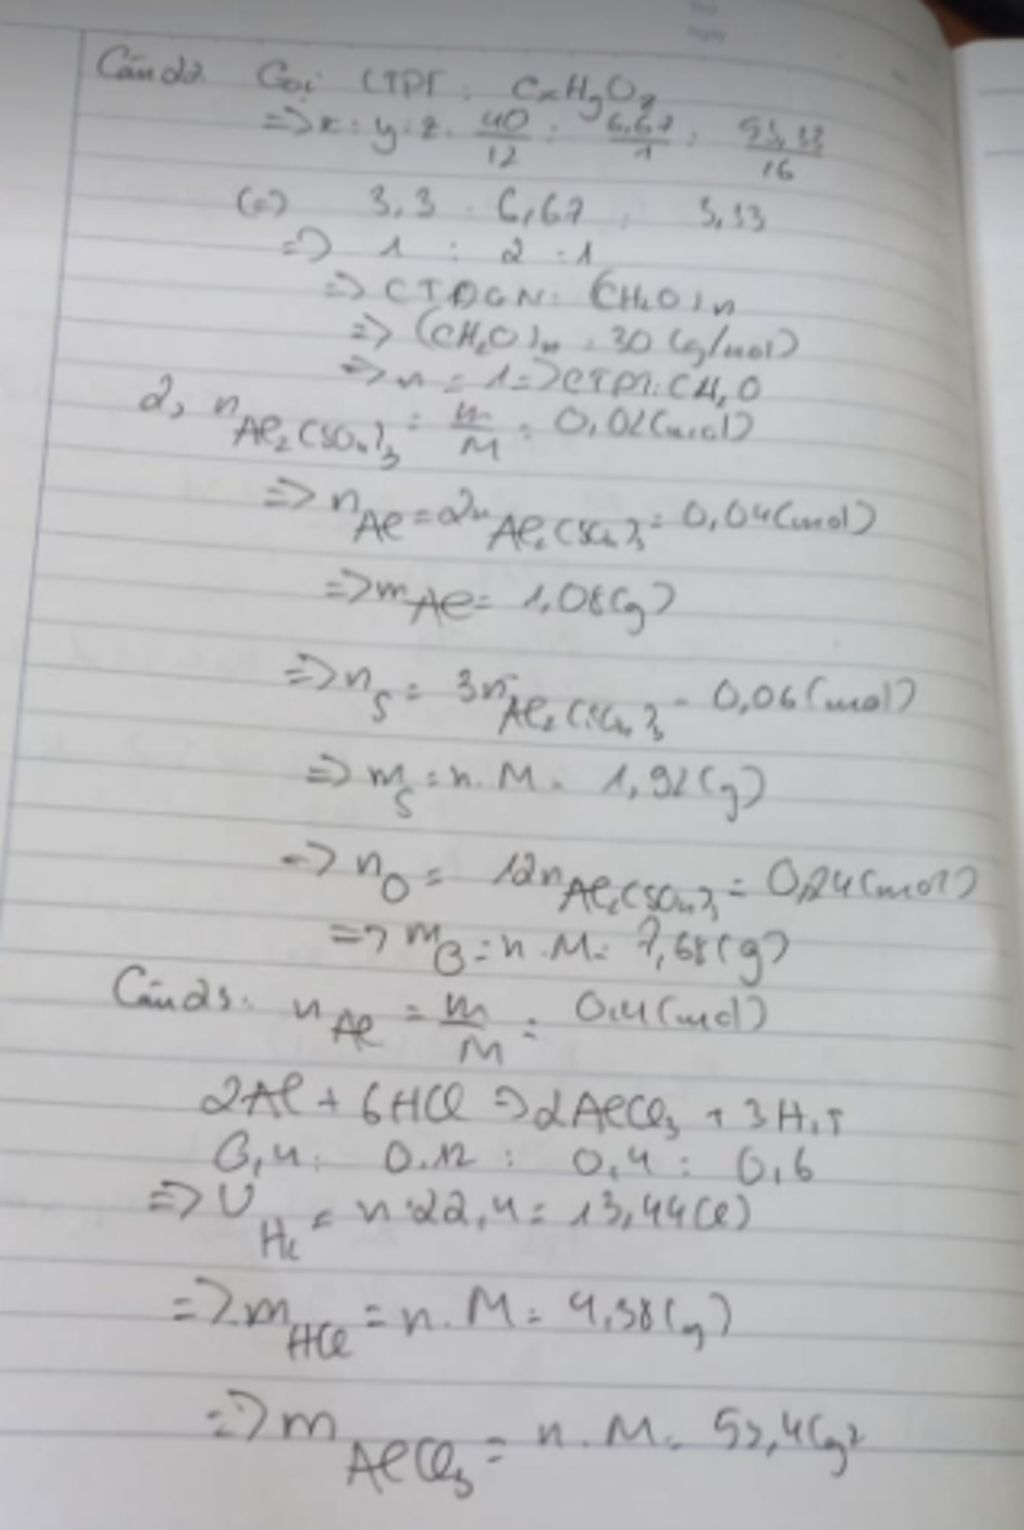 Câu 22 Gọi CTPT: CxHyOz
=> x : y : z = 40/12 : 6,67/1 : 53,33/16
(=) 3,3 : 6,67 : 3,33
=> 1 : 2 : 1
=> CTĐGN: (CH2O)n
=> (CH2O)n = 30 (g/mol)
=> n = 1 => CTPT: CH2O
2, nAl2(SO4)3 = m/M = 0,02 (mol)
=> nAl = 2nAl2(SO4)3 = 0,04 (mol)
=> mAl = 1,08 (g)
=> nS = 3nAl2(SO4)3 = 0,06 (mol)
=> mS = n.M = 1,92 (g)
=> nO = 12nAl2(SO4)3 = 0,24 (mol)
=> mO = n.M = 7,68 (g)
Câu 23: nAl = m/M = 0,4 (mol)
2Al + 6HCl => 2AlCl3 + 3H2↑
0,4 : 0.12 : 0,4 : 0,6
=> VH2 = n.22,4 = 13,44 (l)
=> mHCl = n.M = 4,38 (g)
=> mAlCl3 = n.M = 53,4 (g)